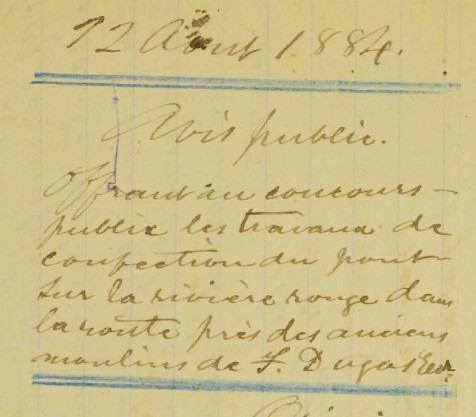 12 Août 1884.
Avis public.
Offrant au concours
public les travaux de
confection du pont
sur la rivière rouge dans
la route près des anciens
moulins de F. Dugas Ecr.